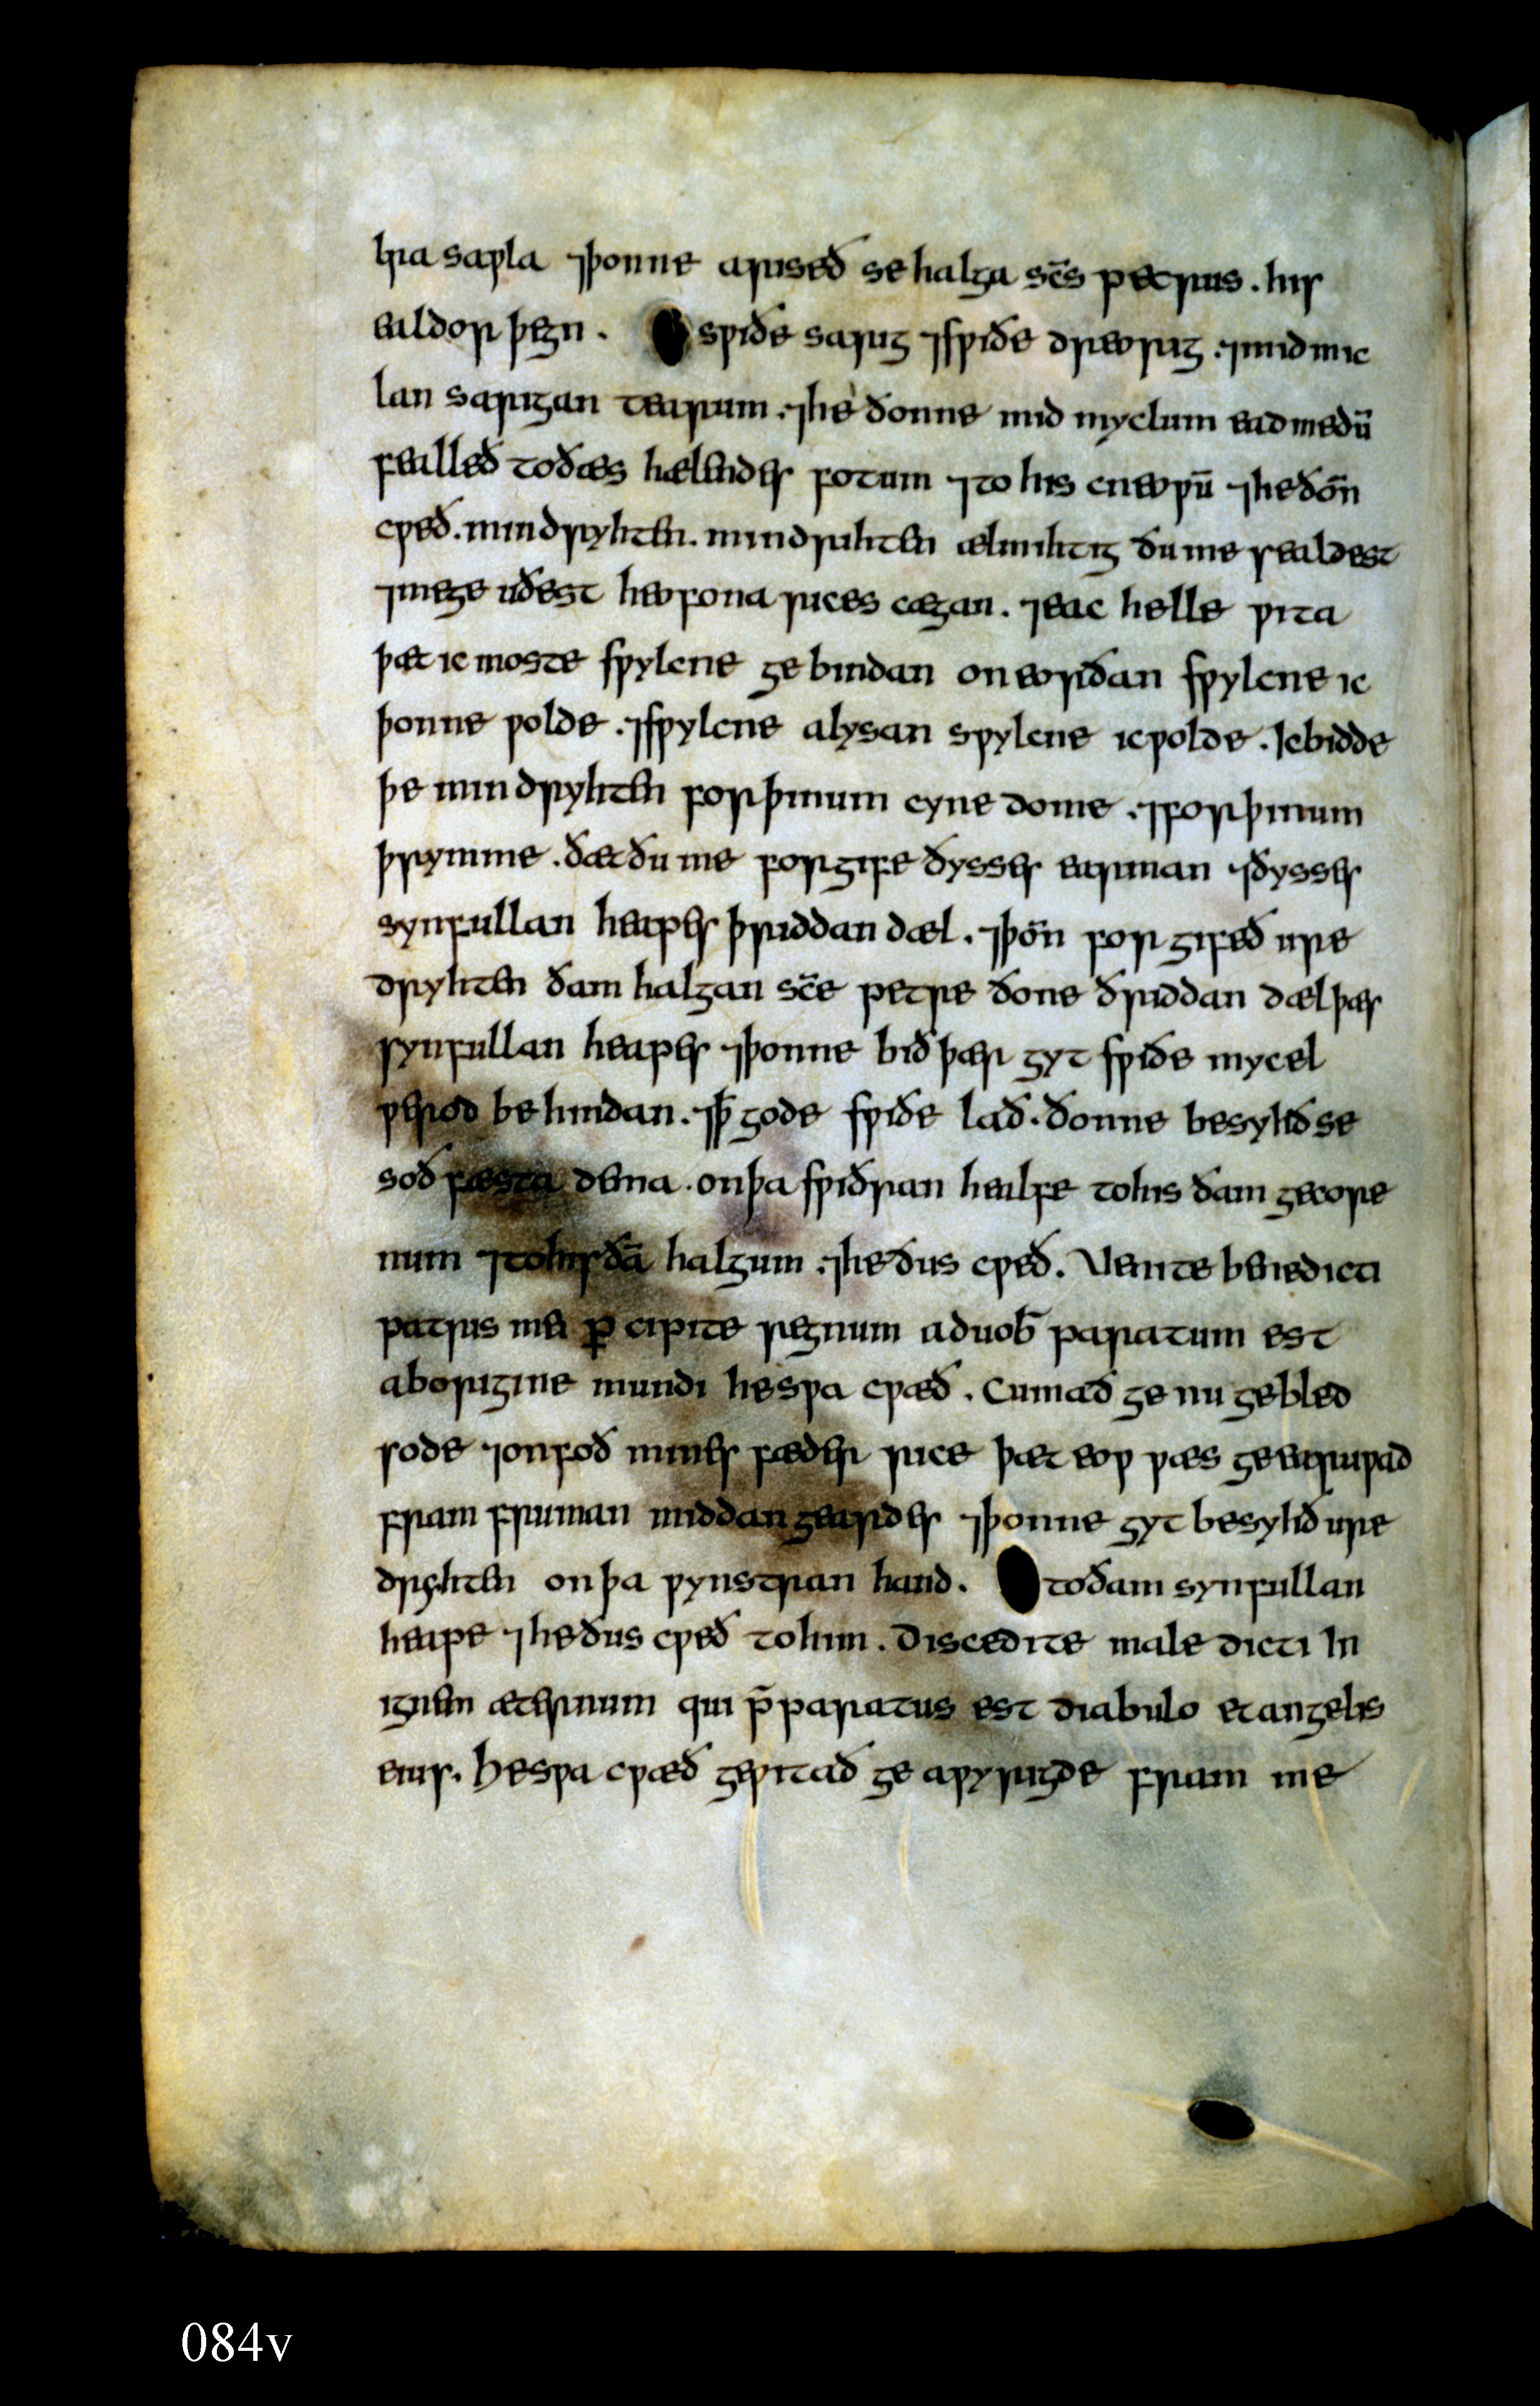 hra saƿla ⁊þonne ariseð se halga scs̄ petrus. his
ealdor þegn. sƿiðe sarig ⁊sƿiðe dreorig. ⁊mid mic
lan sarigan tearum. ⁊he ðonne mid myclum eadmedū
fealleð to ðæs hælendes fotum ⁊to his cneoƿū ⁊he ðoñ
cƿeð. min dryhten. min drihten ælmihtig ðu me sealdest
⁊me geuðest heofona rices cægan. ⁊eac helle ƿita
þæt ic moste sƿylcne gebindan on eorðan sƿylcne ic
þonne ƿolde. ⁊sƿylcne alysan sƿylcne ic ƿolde. Ic bidde
þe min dryhten for þinum cyne dome. ⁊for þinum
þrymme. ðæt ðu me forgife ðysses earman ⁊ðysses
synfullan heapes þriddan dæl. ⁊þoñ for gifeð ure
dryhten ðam halgan sc̄e petre ðone ðriddan dæl þæs
synfullan heapes ⁊þonne bið þær gyt sƿiðe mycel
ƿerod be hindan. ⁊ꝥ gode sƿiðe lað. ðonne besyhð se
soð fæsta dema. on þa sƿiðran healfe to his ðam gecore
num ⁊to his ðā halgum. ⁊he ðus cƿeð. Uenite benedicti
patris mei ꝑcipite regnum a duob̄ paratum est
ab origine mundi he sƿa cƿæð. Cumað ge nu gebled
sode ⁊onfoð mines fæder rice þæt eoƿ ƿæs geearƿad
fram fruman middangeardes ⁊þonne gyt besyhð ure
dryhten on þa ƿynstran hand. to ðam synfullan
heape ⁊he ðus cƿeð to him. Discedite male dicti In
ignem æternum qui p̄paratus est diabulo et angelis
eius. He sƿa cƿæð geƿitað ge aƿyrigde fram me
084v